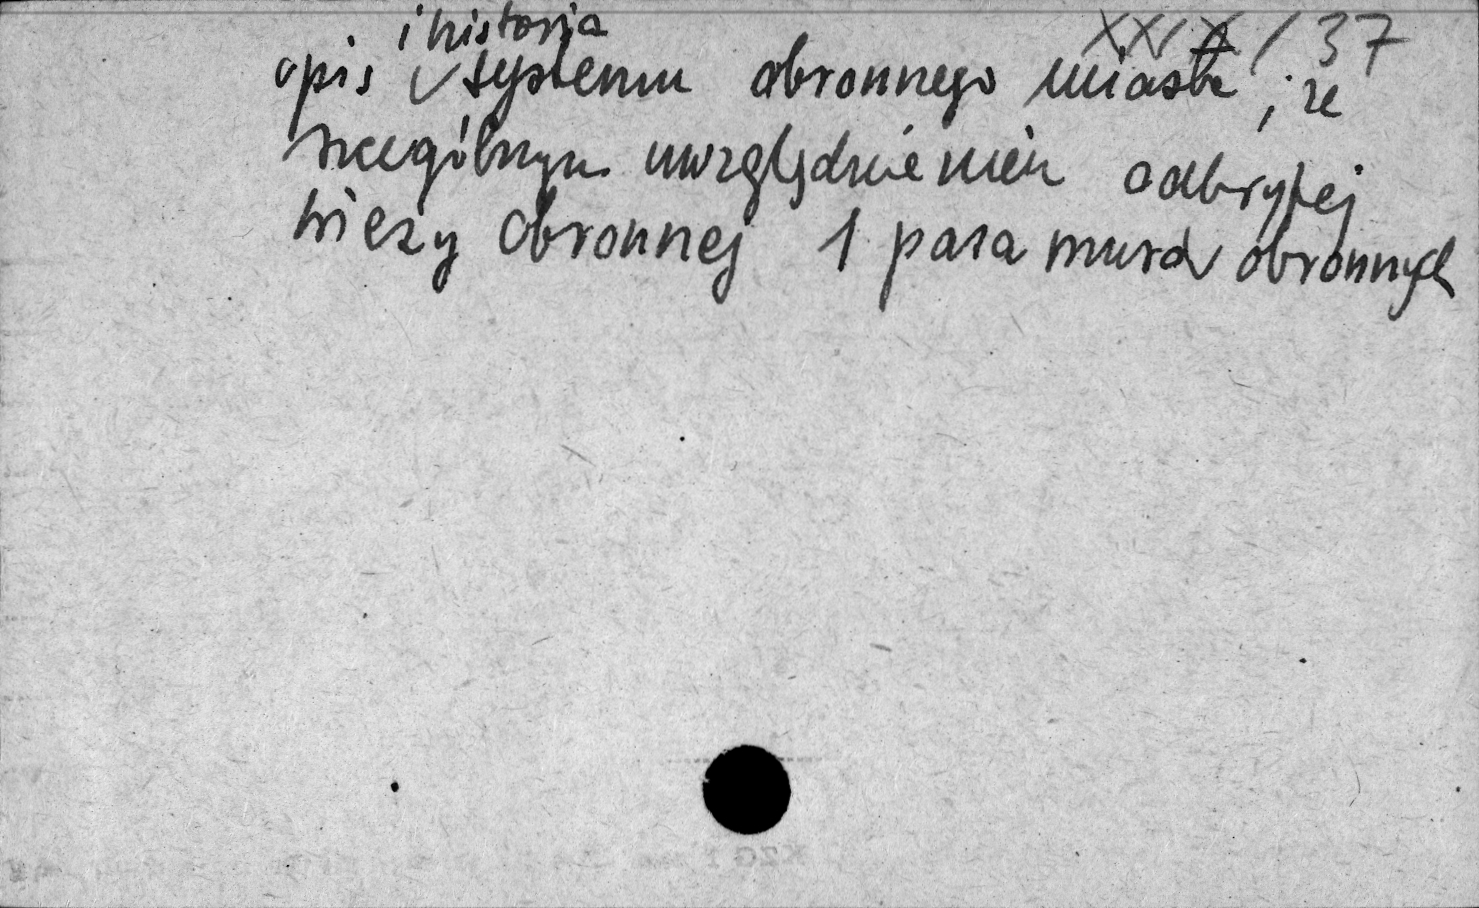 XXIX/37
i historia
opis systemu obronnego miasta, ze
szczególnym uwzględnieniem odkrytej
wieży obronnej 1 pasa murów obronnych